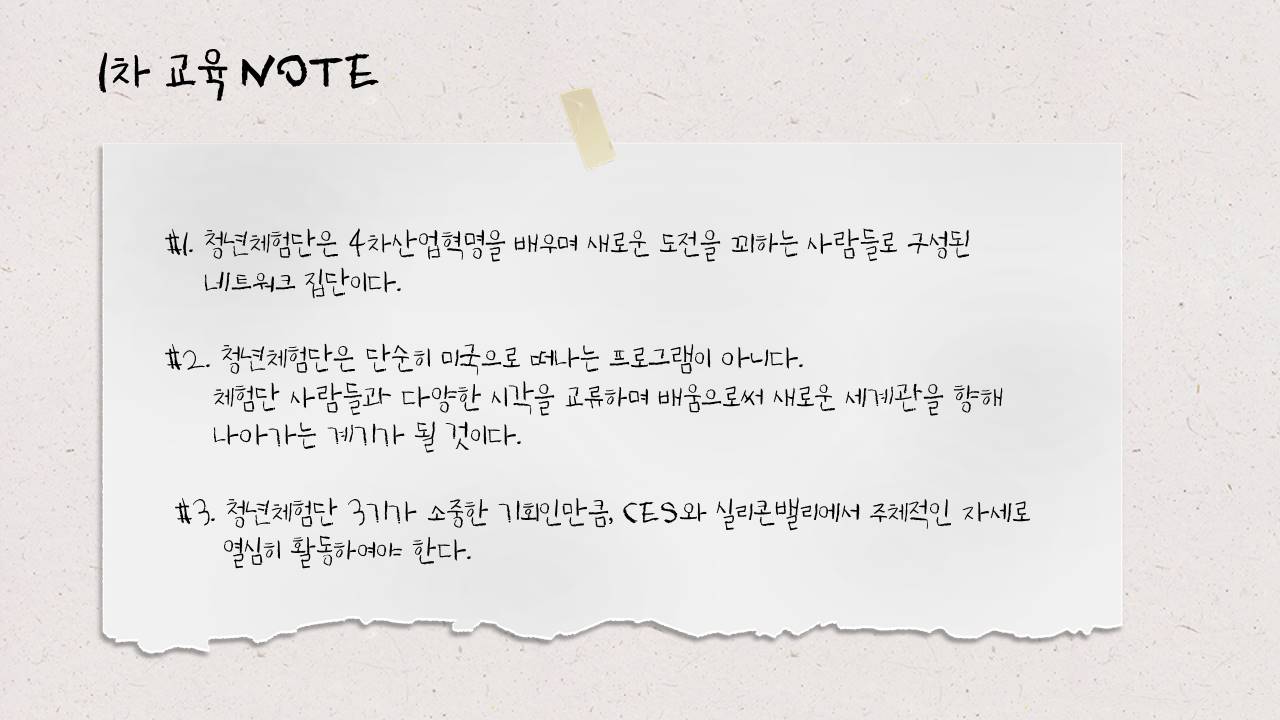 1차 교육 NOTE
#1. 청년체험단은 4차산업혁명을 배우며 새로운 도전을 꾀하는 사람들로 구성된
네트워크 집단이다.
#2. 청년체험단은 단순히 미국으로 떠나는 프로그램이 아니다.
체험단 사람들과 다양한 시각을 교류하며 배움으로써 새로운 세계관을 향해
나아가는 계기가 될 것이다.
#3. 청년체험단 3기가 소중한 기회인만큼, CES와 실리콘밸리에서 주체적인 자세로
열심히 활동하여야 한다.